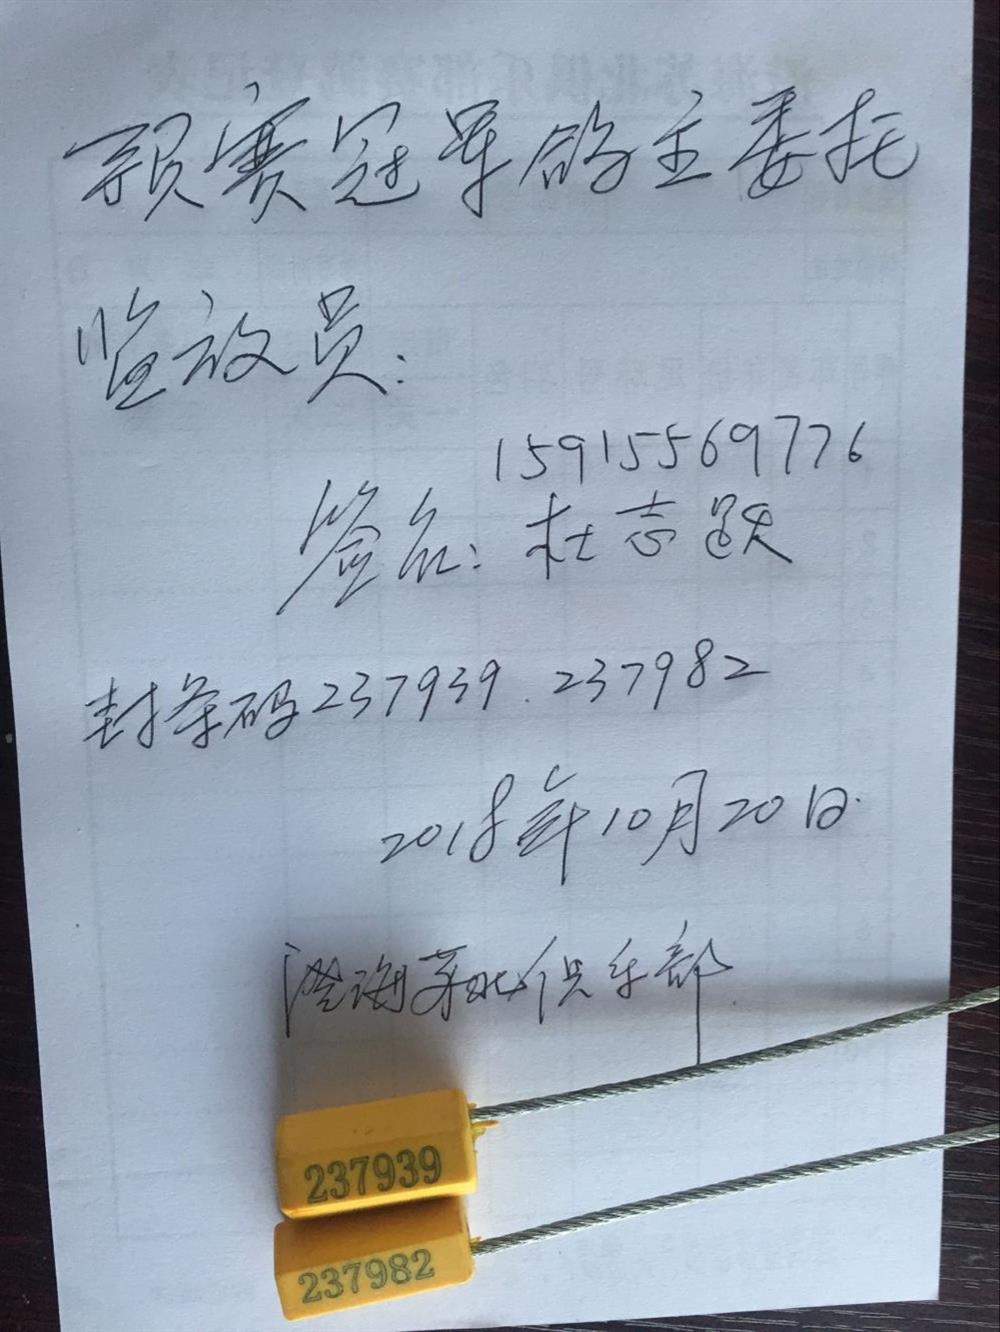 预赛冠军鸽主委托
监放员:
15915569776
签名: 杜志跃
封条码237939.237982
2018年10月20日
澄海苏北俱乐部
237939
237982